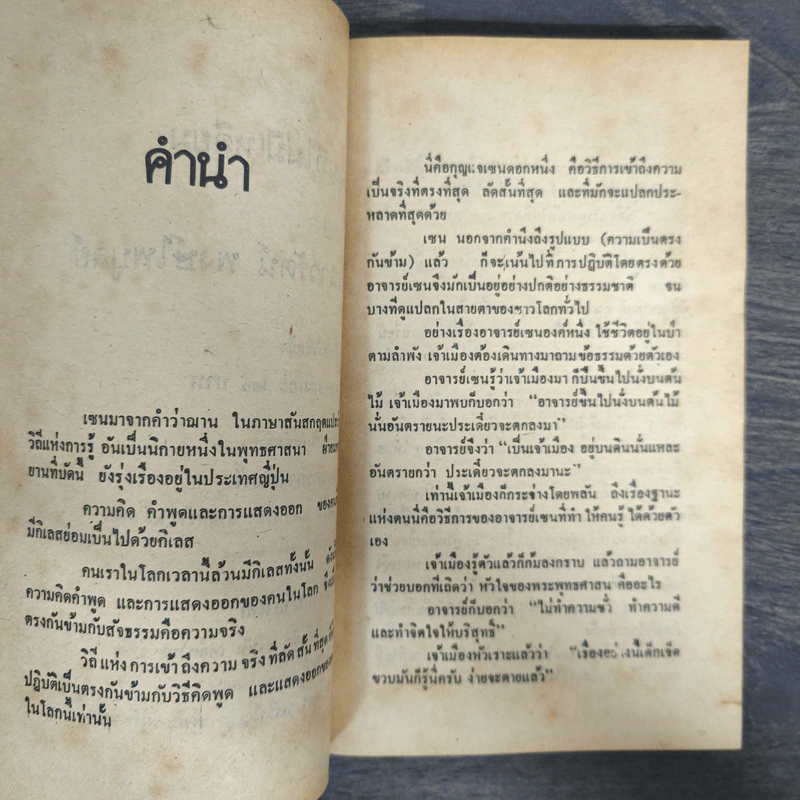 คำนำ
เซนมาจากคำว่าฌาน ในภาษาสันสกฤตแปลว่า
วิถีแห่งการรู้ อันเป็นนิกายหนึ่งในพุทธศาสนา
ยานที่บัดนี้ ยังรุ่งเรืองอยู่ในประเทศญี่ปุ่น
ความคิด คำพูดและการแสดงออก ของคน
มีกิเลสย่อมเป็นไปด้วยกิเลส
คนเราในโลกเวลานี้ล้วนมีกิเลสทั้งนั้น
ความคิดคำพูด และการแสดงออกของคนในโลก
ตรงกันข้ามกับสัจธรรมคือความจริง
วิถีแห่งการเข้าถึงความจริงที่ลัดสั้นที่สุด
ปฏิบัติเป็นตรงกันข้ามกับวิธีคิดพูด และแสดงออกของ
ในโลกนี้เท่านั้น
นี่คือกุญแจเซนดอกหนึ่ง คือวิธีการเข้าถึงความ
เป็นจริงที่ตรงที่สุด ลัดสั้นที่สุด และที่มักจะแปลกประ-
หลาดที่สุดด้วย
เซน นอกจากคำนึงถึงรูปแบบ (ความเป็นตรง
กันข้าม) แล้ว ก็จะเน้นไปที่การปฏิบัติโดยตรงด้วย
อาจารย์เซนจึงมักเป็นอยู่อย่างปกติอย่างธรรมชาติ จน
บางทีดูแปลกในสายตาของชาวโลกทั่วไป
อย่างเรื่องอาจารย์เซนองค์หนึ่ง ใช้ชีวิตอยู่ในป่า
ตามลำพัง เจ้าเมืองต้องเดินทางมาถามข้อธรรมด้วยตัวเอง
อาจารย์เซนรู้ว่าเจ้าเมืองมา ก็ปีนขึ้นไปนั่งบนต้น
ไม้ เจ้าเมืองมาพบก็บอกว่า “อาจารย์ขึ้นไปนั่งบนต้นไม้
นั่นอันตรายนะประเดี๋ยวจะตกลงมา”
อาจารย์จึงว่า “เป็นเจ้าเมือง อยู่บนดินนั่นแหละ
อันตรายกว่า ประเดี๋ยวจะตกลงมานะ”
เท่านี้เจ้าเมืองก็กระจ่างโดยพลัน ถึงเรื่องฐานะ
แห่งตนนี่คือวิธีการของอาจารย์เซนที่ทำ ให้คนรู้ ได้ด้วยตัว
เอง
เจ้าเมืองรู้ตัวแล้วก็ก้มลงกราบ แล้วถามอาจารย์
ว่าช่วยบอกทีเถิดว่า หัวใจของพระพุทธศาสน คืออะไร
อาจารย์ก็บอกว่า “ไม่ทำความชั่ว ทำความดี
และทำจิตใจให้บริสุทธิ์”
เจ้าเมืองหัวเราะแล้วว่า “เรื่องอย่างนี้เด็กเจ็ด
ขวบมันก็รู้นี่ครับ ง่ายจะตายแล้ว”